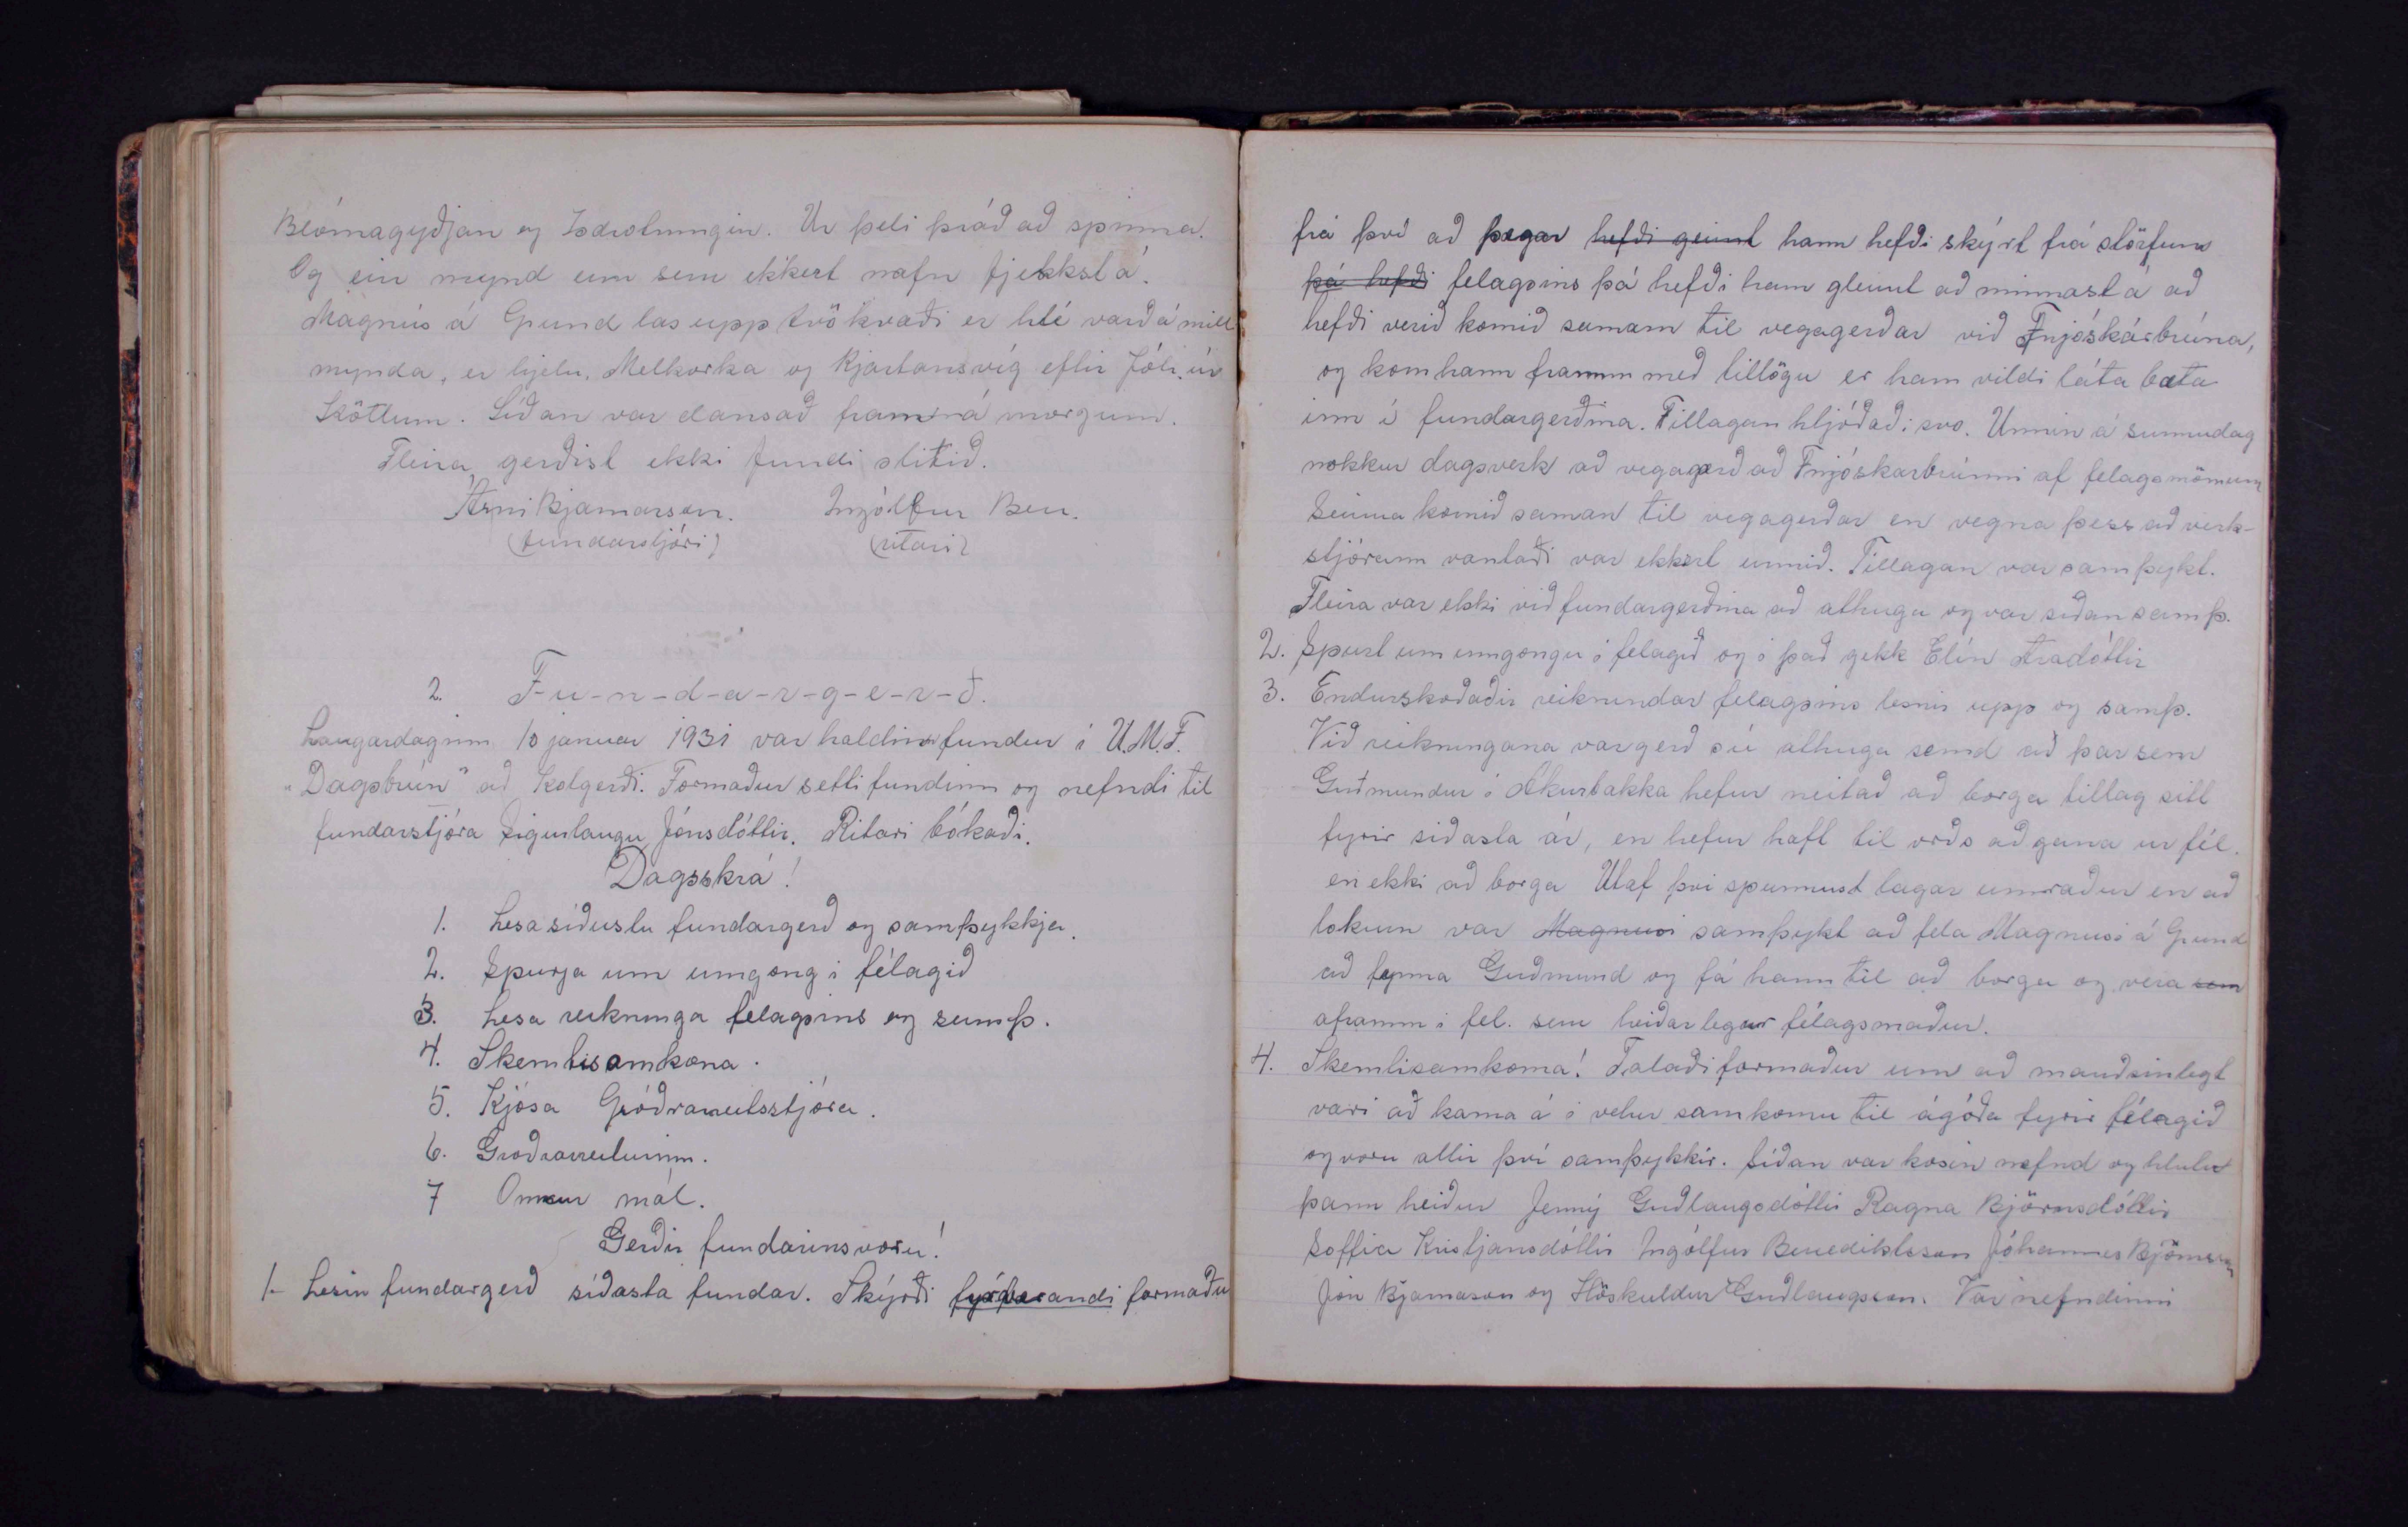 Blómagyðjan og Isdrotningin. Úr þeli þráð að spinna.
Og ein mynd um sem ekkert nafn fjekkst á.
Magnús á Grund las upp tvö kvæði er hlé varð á mill
mynda, er hjetu, Melkorka og Kjartansvíg eftir Jón úr
Kötlum. Síðan var dansað framm á morgunn.
Fleira gerðist ekki fundi slitið.
Árni Bjarnarson. Ingólfur Ben.
(fundarstjóri) (ritari)
2. F-u-n-d-a-r-g-e-r-ð.
Laugardaginn 10 januar 1931 var haldinn fundur í U.M.F.
"Dagsbrún" að Kolgerði. Formaður setti fundinn og nefndi til
fundarstjóra Sigurlaugu Jónsdóttir. Ritari bókaði.
Dagsskrá!
1. Lesa síðustu fundargerð og samþykkja.
2. Spurja um inngöng i félagið
3. Lesa reikninga felagsins og samþ.
4. Skemtisamkoma.
5. Kjósa Gróðrareitsstjóra.
6. Groðrareiturinn.
7 Onnur mál.
Gerðir fundarins voru!
1. Lesin fundargerð síðasta fundar. Skýrði fyrverandi formaðu
frá því að þegar hefði geimt hann hefði skýrt frá störfum
þá hefði felagsins þá hefði hann gleimt að minnast á að
hefði verið komið saman til vegagerðar við Fnjóskárbrúna,
og kom hann framm með tillögu er hann vildi láta bæta
inn í fundargerðina. Tillagan hljóðaði svo. Unnin á sunnudag
nokkur dagsverk að vegagerð að Fnjóskarbrúnni af felagsmönnum
Seinna komið saman til vegagerðar en vegna þess að verk-
stjórann vantaði var ekkert unnið. Tillagan var samþykt.
Fleira var ekki við fundargerðina að athuga og var síðan samþ.
2. Spurt um inngöngu í felagið og í það gekk Elín Aradóttir
3. Endurskoðaðir reiknindar felagsins lesnir upp og samþ.
Við reikningana var gerð sú athuga semd að þar sem
Guðmundur í Akurbakka hefur neitað að borga tillag sitt
fyrir siðasta ár, en hefur haft til orðs að gana ur fél.
en ekki að borga Utaf þvi spunnust lagar umræður en að
lokum var Magnusi samþykt að fela Magnusi á Grund
að finna Guðmund og fá hann til að borga og vera sem
aframm i fel. sem heiðarlegur félagsmaður.
4. Skemtisamkoma! Talaði formaður um að nauðsinlegt
væri að kama á í vetur samkomu til ágóða fyrir félagið
og voru allir því samþykkir. Síðan var kosin nefnd og hlutu
þann heiður Jenný Guðlaugsdóttir Ragna Björnsdóttir
Soffia Kristjansdóttir Ingólfur Benediktsson Jóhannes Björnsson
Jón Bjarnason og Höskuldur Guðlaugsson. Var nefndinni